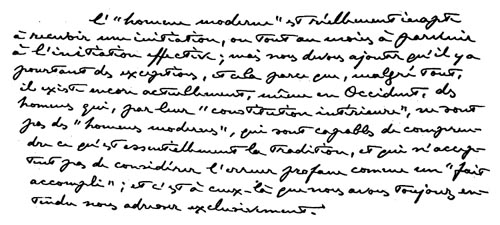 L'"homme moderne" est réellement inapte
à recevoir une initiation, ou tout au moins à parvenir
à l'initiation effective ; mais nous devons ajouter qu'il y a
pourtant des exceptions, et cela parce que, malgré tout,
il existe encore actuellement, même en Occident, des
hommes qui, par leur "constitution intérieure", ne sont
pas des "hommes modernes", qui sont capables de compren-
dre ce qu'est essentiellement la tradition, et qui n'accep-
tent pas de considérer l'erreur profane comme un "fait
accompli" ; et c'est à ceux-là que nous avons toujours en-
tendu nous adresser exclusivement.